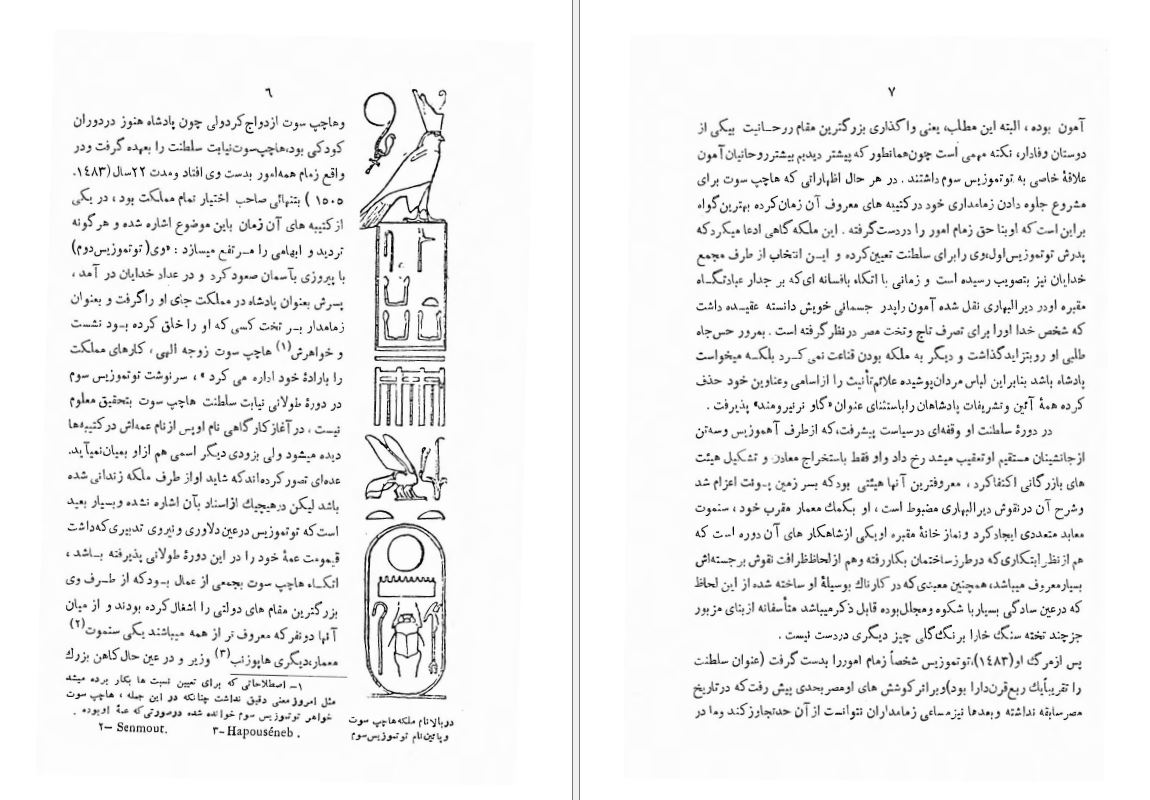 ٦
وهاچپ سوت ازدواج کرد ولی چون پادشاه هنوز دردوران
کودکی بود، هاچپ‌سوت نیابت سلطنت را بعهده گرفت ودر
واقع زمام همه‌امور بدست وی افتاد ومدت ۲۲ سال (۱٤۸۳-
۱۵۰۵ ) بتنهائی صاحب اختیار تمام مملکت بود ، در یکی
ازکتیبه های آن زمان باین موضوع اشاره شده و هر گونه
تردید و ابهامی را مـرتفع میسازد : «وی( توتموزیس‌دوم)
با پیروزی بآسمان صعود کرد و در عداد خدایان در آمد ،
پسرش بعنوان پادشاه در مملکت جای او راگرفت و بعنوان
زمامدار بـر تخت کسی که او را خلق کرده بـود نشست
و خواهرش(۱) هاچپ سوت زوجه الهی ، کارهای مملکت
را بارادهٔ خود اداره می کرد » ، سرنوشت توتموزیس سوم
در دورهٔ طولانی نیابت سلطنت هاچپ سوت بتحقیق معلوم
نیست ، در آغاز کار گاهی نام او پس از نام عمه‌اش درکتیبه‌ها
دیده میشود ولی بزودی دیگر اسمی هم ازاو بمیان‌نمیآید.
عده‌ای تصور کرده‌اند که شاید اواز طرف ملکه زندانی شده
باشد لیکن درهیچیك ازاسناد بآن اشاره نشده وبسیار بعید
است‌که توتموزیس درعین دلاوری ونیروی تدبیری که‌داشت
قیمومت عمهٔ خود را در این دورهٔ طولانی پذیرفته بـاشد ،
اتکـاء هاچپ سوت بجمعی از عمال بـودکه از طـرف وی
بزرگترین مقام های دولتی را اشغال کرده بودند و از میان
آنها دونفرکه معروف تر از همه میباشند یکی سنموت(۲)
معمار، دیگری هاپوزنب(۳) وزیر و در عین حال کاهن بزرك
۱- اصطلاحاتی که برای تعیین نسبت ها بکار برده میشد
مثل امروز معنی دقیق نداشت چنانکه در این جمله ، هاچپ سوت
خواهر توتموزیس سوم خوانده شده درصورتی‌که عمهٔ اوبوده .
۲- Senmout. ۳- Hapouséneb .
در بالا نام ملکه هاچپ سوت
و پائین نام توتموزیس سوم
۷
آمون بوده ، البته این مطلب، یعنی واگذاری بزرگترین مقام روحـانیت بیکی از
دوستان وفادار، نکته مهمی است چون‌همانطور که پیشتر دیدیم بیشتر روحانیان آمون
علاقهٔ خاصی به توتموزیس سوم داشتند . در هر حال اظهاراتی که هاچپ سوت برای
مشروع جلوه دادن زمامداری خود درکتیبه های معروف آن زمان کرده بهترین گواه
براین است که اوبنا حق زمام امور را دردست گرفته . این ملکه گاهی ادعا میکردکه
پدرش توتموزیس‌اول،وی رابرای سلطنت تعیین‌کرده و ایـن انتخاب از طرف مجمع
خدایان نیز بتصویب رسیده است و زمانی با اتکاء بافسانه ای‌که بر جدار عبادتگـاه
مقبره اودر دیرالبهاری نقل شده آمون راپدر جسمانی خویش دانسته عقیـده داشت
که شخص خدا اورا برای تصرف تاج وتخت مصر درنظر گرفته است . بمرور حس‌جاه
طلبی او روبتزاید گذاشت و دیگر به ملکه بودن قناعت نمی کـرد بلکـه میخواست
پادشاه باشد بنابراین لباس مردان‌پوشیده علائم‌تأنیث را ازاسامی وعناوین خود حذف
کرده همهٔ آئین وتشریفات پادشاهان راباستثنای عنوان «گاو نر نیرومند» پذیرفت .
در دورهٔ سلطنت او وقفه‌ای درسیاست پیشرفت،که ازطرف آهموزیس وسه‌تن
ازجانشینان مستقیم اوتعقیب میشد رخ داد واو فقط باستخراج معادن و تشکیل هیئت
های بازرگانی اکتفاکرد ، معروفترین آنها هیئتی بودکه بسر زمین پـونت اعزام شد
وشرح آن درنقوش دیرالبهاری مضبوط است ، او بکمك معمار مقرب خود ، سنموت
معابد متعددی ایجادکرد ونماز خانهٔ مقبره اویکی ازشاهکار های آن دوره است که
هم ازنظر ابتکاری‌که درطرز ساختمان بکاررفته وهم ازلحاظ ظرافت نقوش برجسته‌اش
بسیارمعروف میباشد، همچنین معبدی‌که در کارناك بوسیلهٔ او ساخته شده از این لحاظ
که درعین سادگی بسیاربا شکوه ومجلل‌بوده قابل ذکرمیباشد متأسفانه ازبنای مزبور
جزچند تخته سنك خارا برنك گلی چیز دیگری دردست نیست .
پس ازمرگ او(۱٤۸۳)،توتموزیس شخصاً زمام اموررا بدست گرفت (عنوان سلطنت
را تقریباًیك ربع‌قرن‌دارا بود)وبراثر کوشش های اومصر بحدی پیش رفت‌که درتاریخ
مصرسابقه نداشته وبعدها نیزمساعی زمامداران نتوانست از آن حدتجاوزکند وما در